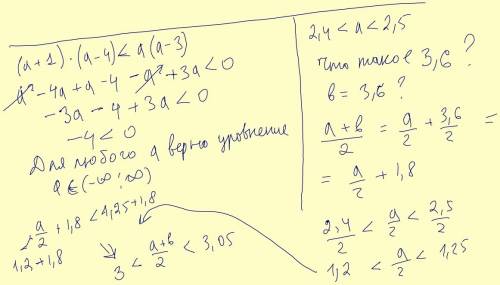 (a+1)·(a-4)<a(a-3)
a²-4a+a-4-a²+3a<0
-3a-4+3a<0
-4<0
Для любого a верно уровнение
a∈(-∞;∞)
a/2+1,8<1,25+1,8
1,2+1,8
3<(a+b)/2<3,05
2,4<a<2,5
Что такое 3,6?
b=3,6?
(a+b)/2=a/2+3,6/2=
=a/2+1,8
2,4/2<a/2<2,5/2
1,2<a/2<1,25